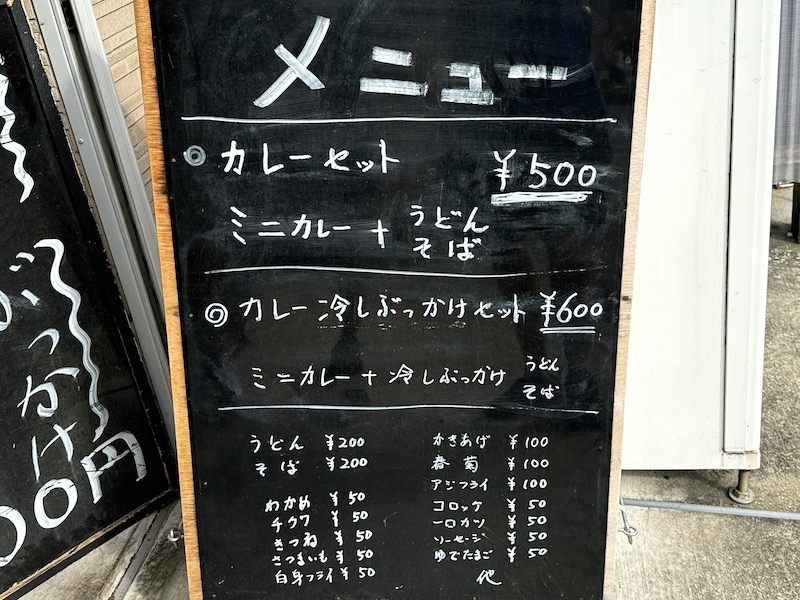 メニュー
◎ カレーセット ¥500
ミニカレー + うどん
そば
◎ カレー冷しぶっかけセット ¥600
ミニカレー + 冷しぶっかけ うどん
そば
うどん ¥200
そば ¥200
わかめ ¥50
チクワ ¥50
きつね ¥50
さつまいも ¥50
白身フライ ¥50
かきあげ ¥100
春菊 ¥100
アジフライ ¥100
コロッケ ¥50
一口カツ ¥50
ソーセージ ¥50
ゆでたまご ¥50
他
ぶっかけ
00円